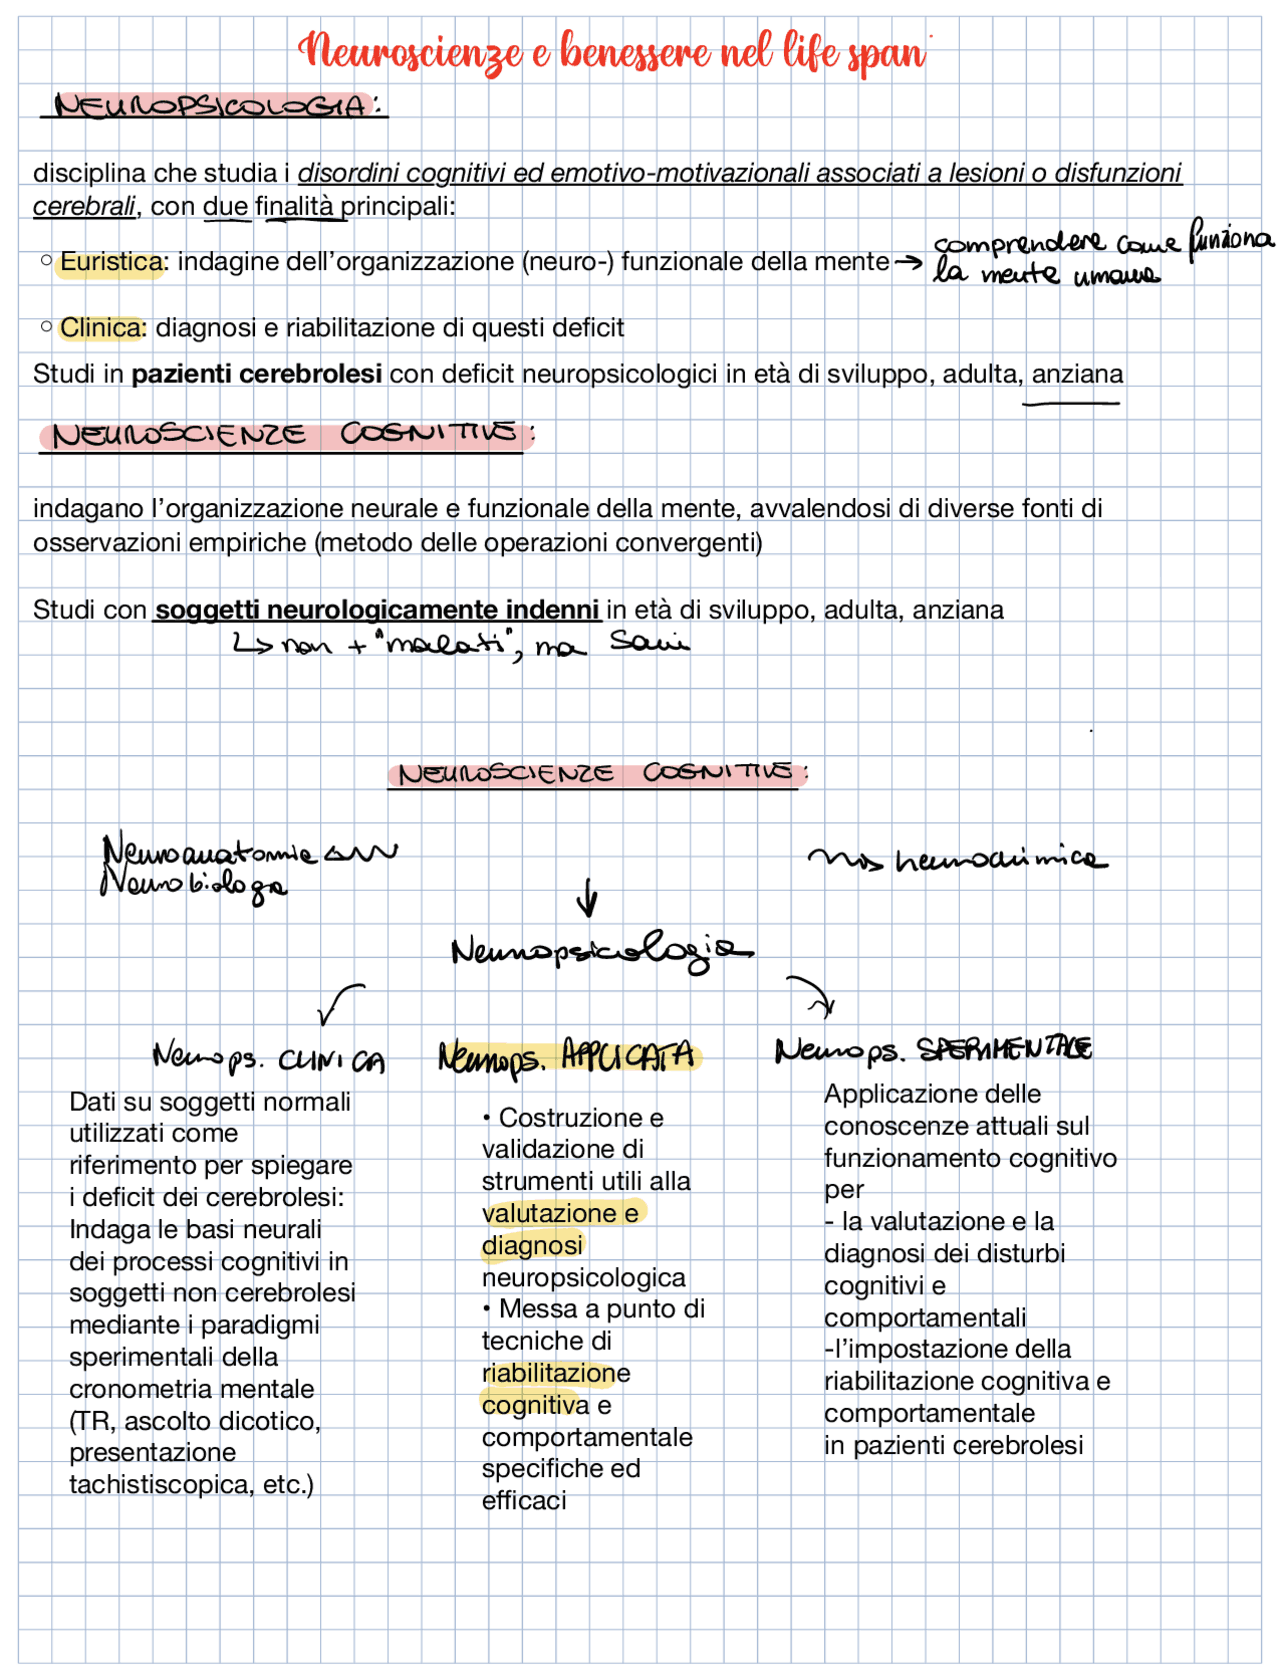 Neuroscienze e benessere nel life span
NEUROPSICOLOGIA:
disciplina che studia i disordini cognitivi ed emotivo-motivazionali associati a lesioni o disfunzioni
cerebrali, con due finalità principali:
○ Euristica: indagine dell'organizzazione (neuro-) funzionale della mente → comprendere come funziona
la mente umana
○ Clinica: diagnosi e riabilitazione di questi deficit
Studi in pazienti cerebrolesi con deficit neuropsicologici in età di sviluppo, adulta, anziana
NEUROSCIENZE COGNITIVE:
indagano l'organizzazione neurale e funzionale della mente, avvalendosi di diverse fonti di
osservazioni empiriche (metodo delle operazioni convergenti)
Studi con soggetti neurologicamente indenni in età di sviluppo, adulta, anziana
↳ non + "malati", ma sani
NEUROSCIENZE COGNITIVE:
Neuroanatomie
Neurobiologia
neurochimica
↓
Neuropsicologia
Neurops. CLINICA
Dati su soggetti normali
utilizzati come
riferimento per spiegare
i deficit dei cerebrolesi:
Indaga le basi neurali
dei processi cognitivi in
soggetti non cerebrolesi
mediante i paradigmi
sperimentali della
cronometria mentale
(TR, ascolto dicotico,
presentazione
tachistiscopica, etc.)
Neurops. APPLICATA
• Costruzione e
validazione di
strumenti utili alla
valutazione e
diagnosi
neuropsicologica
• Messa a punto di
tecniche di
riabilitazione
cognitiva e
comportamentale
specifiche ed
efficaci
Neurops. SPERIMENTALE
Applicazione delle
conoscenze attuali sul
funzionamento cognitivo
per
- la valutazione e la
diagnosi dei disturbi
cognitivi e
comportamentali
-l'impostazione della
riabilitazione cognitiva e
comportamentale
in pazienti cerebrolesi